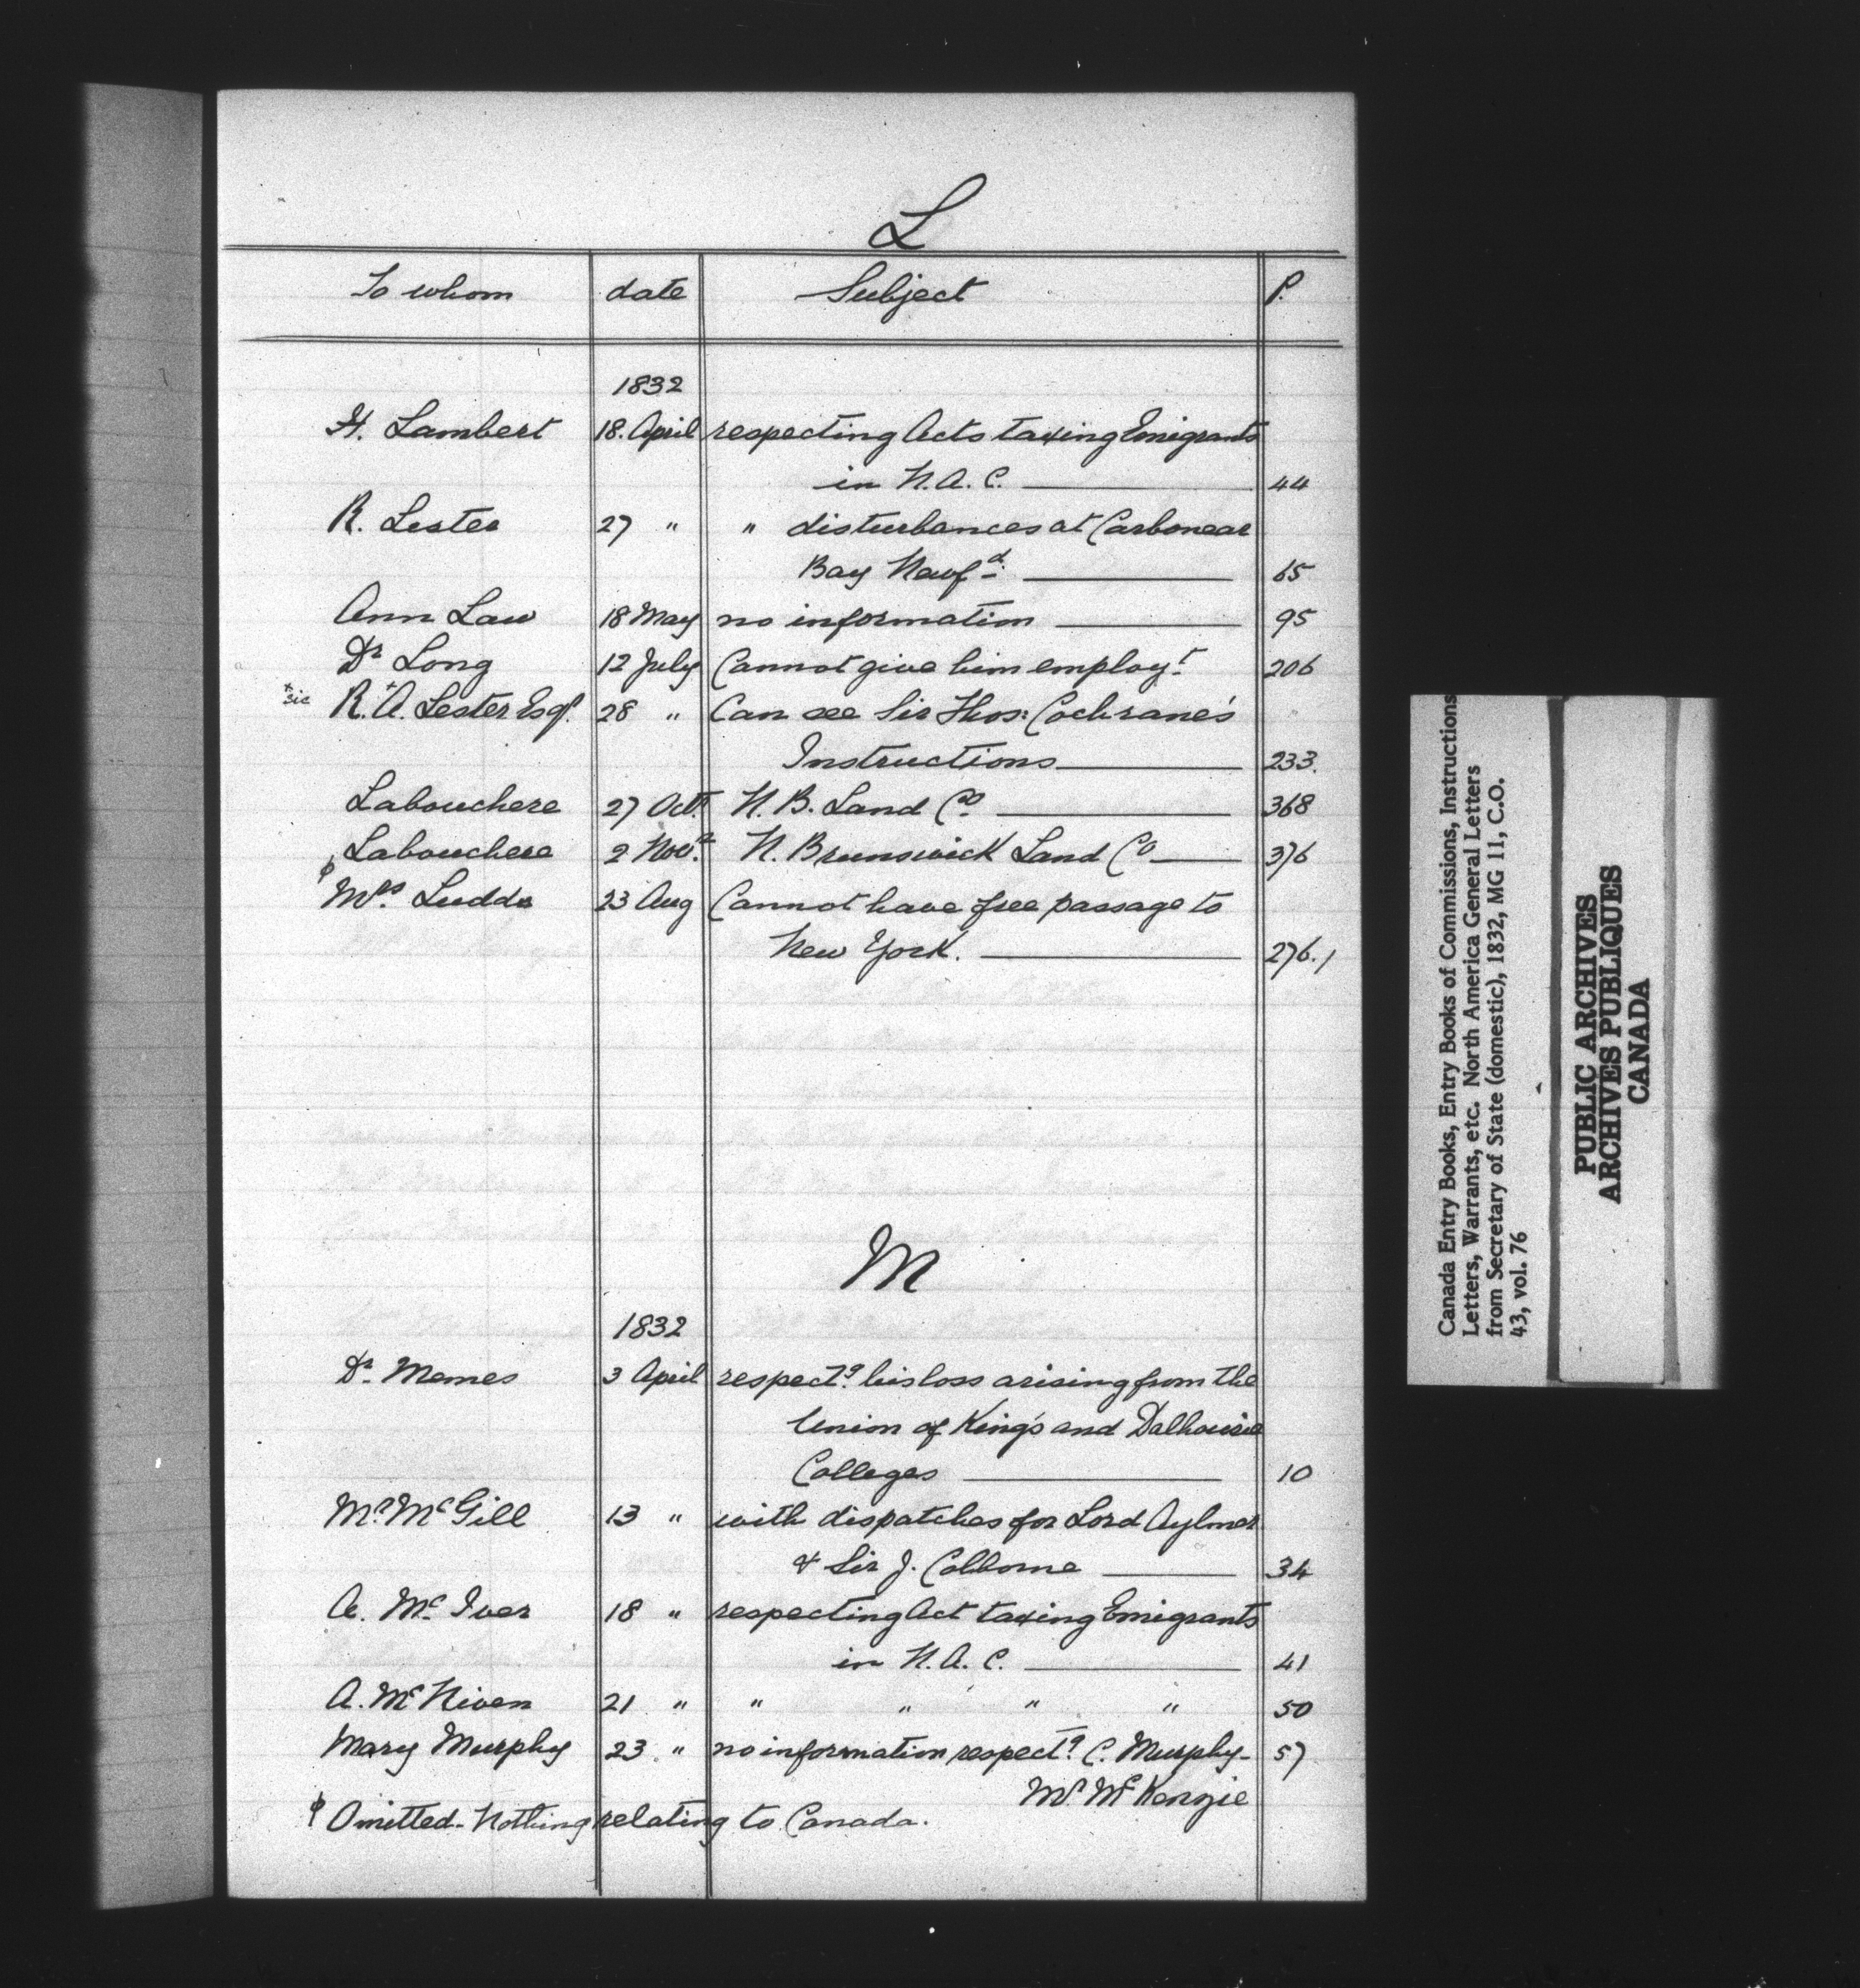 L
To whom date Subject P.
1832
H. Lambert 18. April respecting Acts taxing Emigrants
in N. A. C. 44
R. Lester 27 " " disturbances at Carbonear
Bay Newfd. 65
Ann Law 18 May no information 95
Dr Long 12 July Cannot give him employt. 206
+ sic R. +A. Lester Esqr. 28 " Can see Sir Thos: Cochrane's
Instructions 233.
Labouchere 27 Oct. N. B. Land Co. 368
Labouchere 2 Novr. N. Brunswick Land Co 376
φ Mrs. Ludds 23 Aug Cannot have free passage to
New York. 276.1
M
1832
Dr. Memes 3 April respectg. his loss arising from the
Union of King's and Dalhousie
Colleges 10
Mr. McGill 13 " with dispatches for Lord Aylmer
& Sir J. Colborne 34
A. McIver 18 " respecting Act taxing Emigrants
in N. A. C. 41
A. McNiven 21 " " " " " 50
Mary Murphy 23 " no information respectg. C. Murphy- 57
Mr. McKenzie
φ Omitted- Nothing relating to Canada.
Canada Entry Books, Entry Books of Commissions, Instructions
Letters, Warrants, etc. North America General Letters
from Secretary of State (domestic), 1832, MG 11, C.O.
43, vol. 76
PUBLIC ARCHIVES
ARCHIVES PUBLIQUES
CANADA